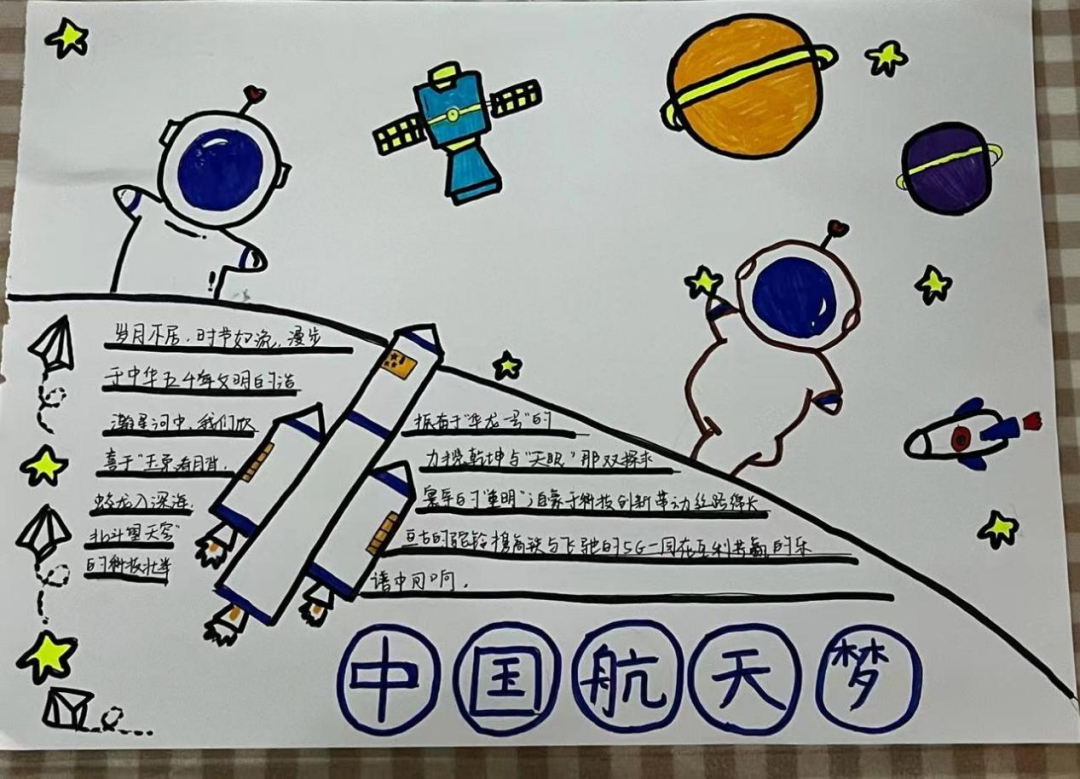 岁月不居，时节如流，漫步
于中华五千年文明的浩
瀚星河中，我们欣
喜于"玉兔奔月背，
蛟龙入深海，
北斗 天空"
的科技壮举
振奋于"华龙一号"的
力挽乾坤与"天眼"那双探求
的"重明"；自豪于科技创新带动丝路绵长
亘古的驼铃携高铁与飞驰的5G一同在互利共赢的乐
谱中回响。
中国航天梦